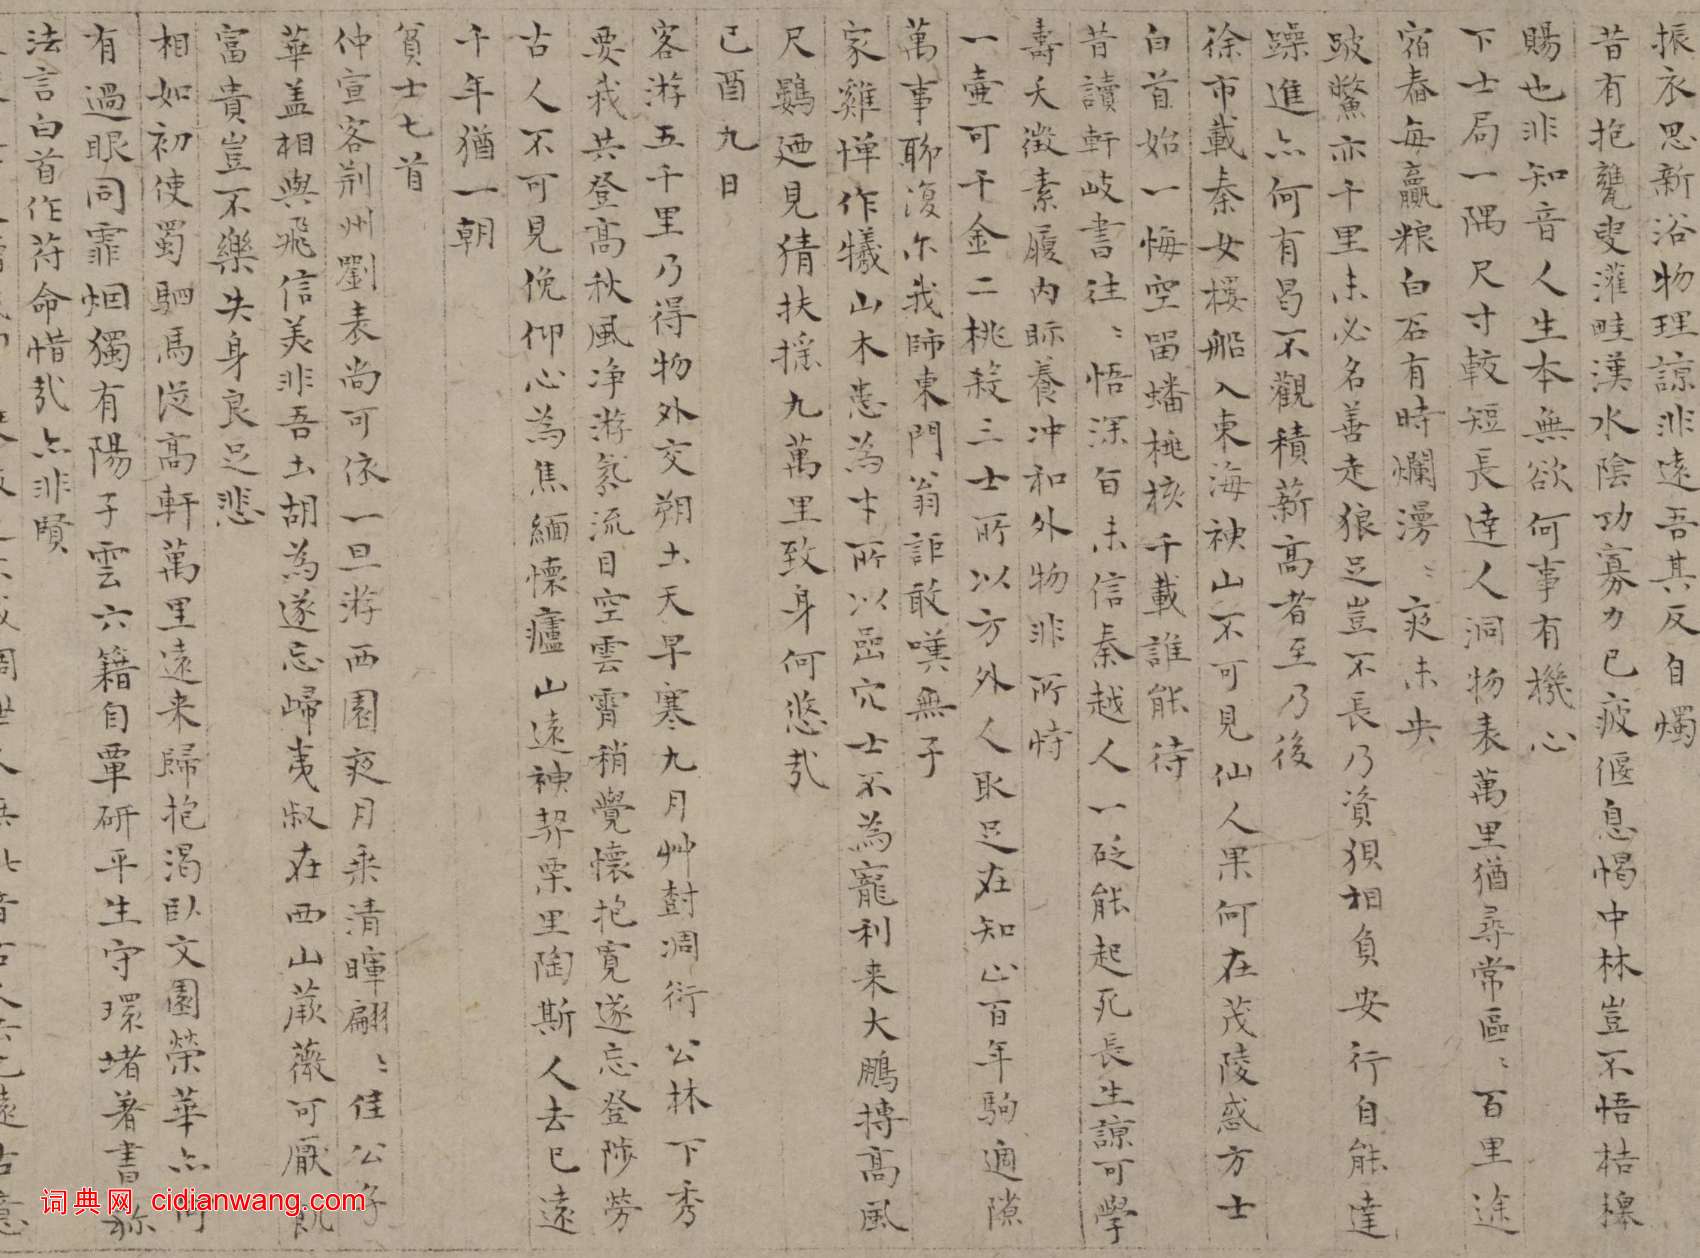 振衣思新浴物理諒非遠吾其反自燭
昔有抱甕叟灌畦漢水陰功寡力已疲偃息愒中林豈不悟桔槔
賜也非知音人生本無欲何事有機心
下士局一隅尺寸較短長達人洞物表萬里猶尋常區〻百里途
宿舂每贏粮白石有時爛漫〻夜未央
跛鱉亦千里未必名善走狼足豈不長乃資狽相負安行自能達
躁進亦何有曷不觀積薪高者至乃後
徐市載秦女樓船入東海神山不可見仙人果何在茂陵惑方士
白首始一悔空留蟠桃核千載誰能待
昔讀軒岐書往〻悟深旨未信秦越人一砭能起死長生諒可學
壽夭徵素履内眎養冲和外物非所恃
一壷可千金二桃殺三士所以方外人取足在知止百年駒過隙
萬事聊復尔我師東門翁詎敢嘆無子
家雞憚作犧山木恚為牛所以嵓穴士不為寵利来大鵬搏高風
尺鷃廼見猜扶摇九萬里致身何悠哉
已酉九日
客游五千里乃得物外交朔土天早寒九月艸封凋衍公林下秀
要我共登高秋風净游氛流目空雲霄稍覺懷抱寛遂忘登陟勞
古人不可見俛仰心為焦緬懷廬山遠神契栗里陶斯人去已遠
千年猶一朝
貧士七首
仲宣客荆州劉表尚可依一旦游西園夜月乘清暉翩〻佳公子
華盖相與飛信美非吾土胡為遂忘歸夷叔在西山蕨薇可厭飢
富貴豈不樂失身良足悲
相如初使蜀駟馬從高軒萬里遠来歸抱渴卧文園榮華亦何
有過眼同霏烟獨有陽子雲六籍自覃研平生守環堵著書称
法言白首作苻命惜哉亦非賢
词典网 cidianwang.com